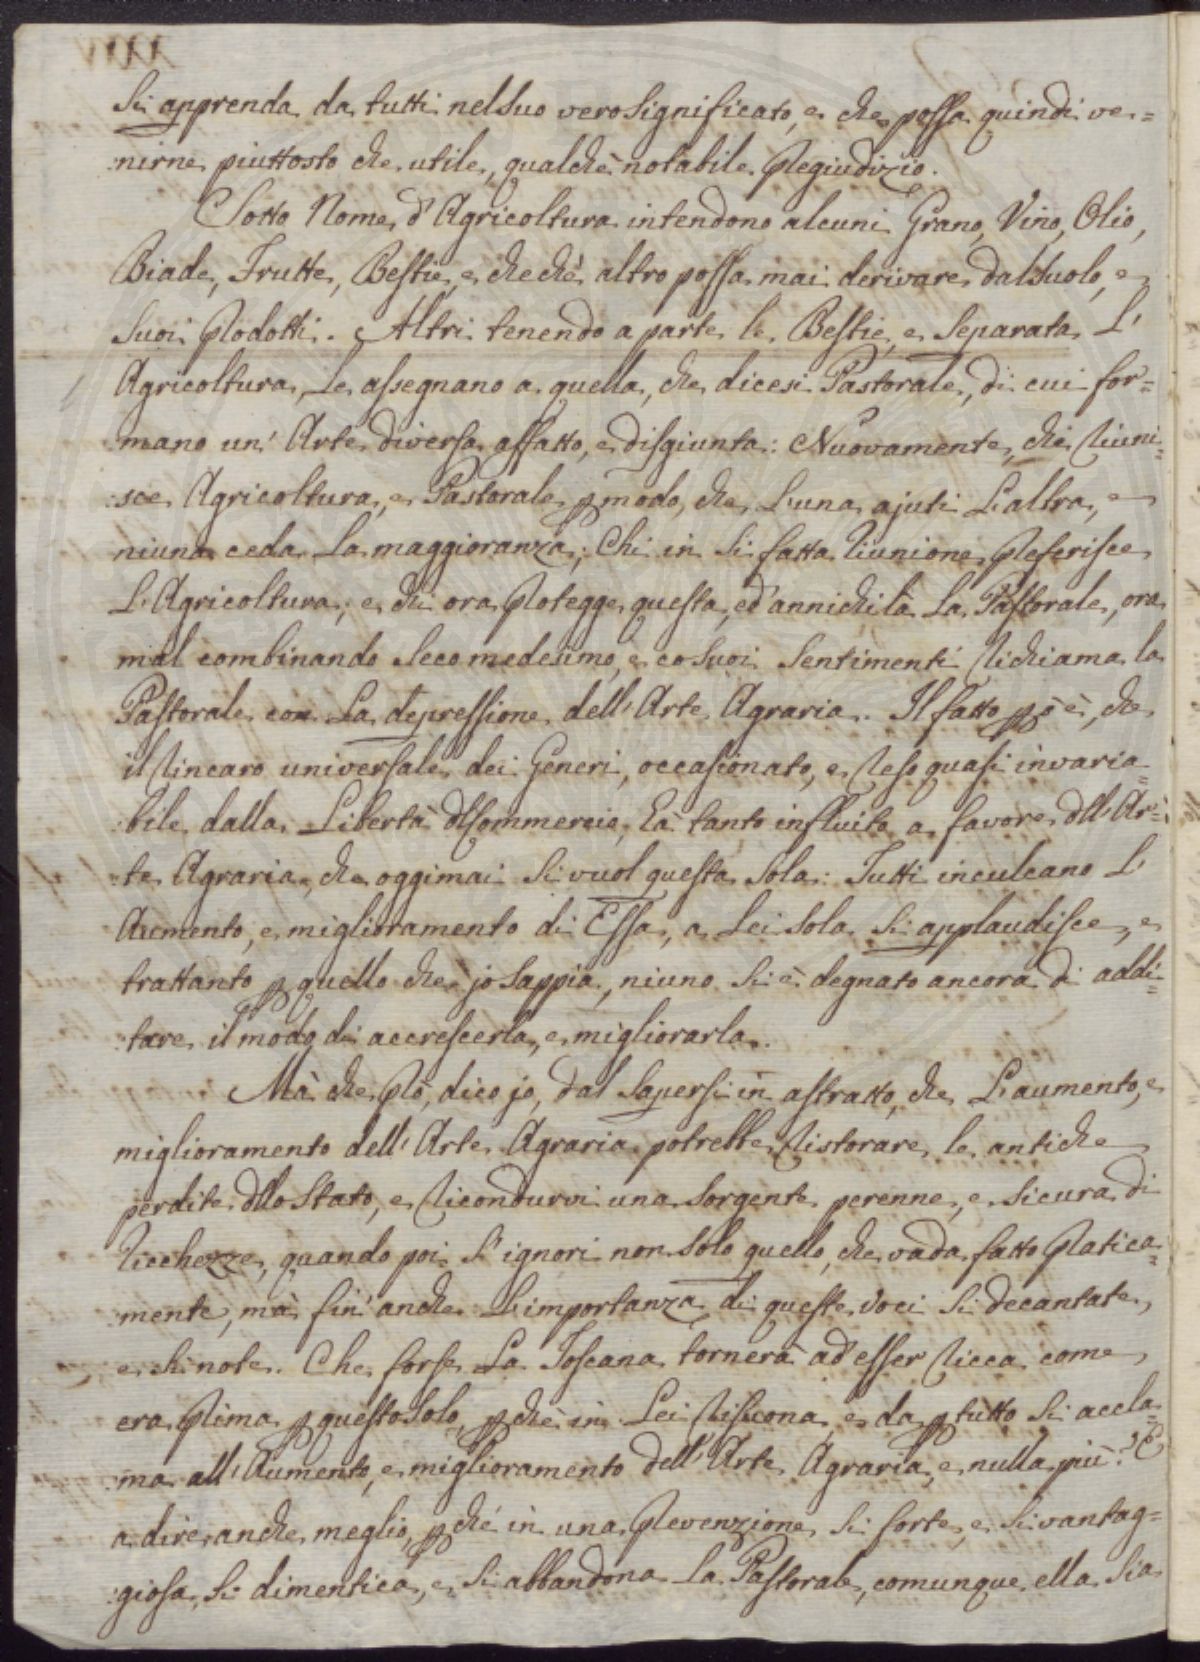 si apprenda da tutti nel suo vero significato, e che possa quindi ve=
:nirne piuttosto che utile, qualche notabile Pregiudizio.
Sotto Nome d'Agricoltura intendono alcuni Grano, Vino, Olio,
Biade, Frutte, Bestie, e checchè altro possa mai derivare dal suolo, e
suoi Prodotti. Altri tenendo a parte le Bestie, e separata L'
Agricoltura, Le assegnano a quella, che dicesi Pastorale, di cui for=
mano un' Arte diversa affatto, e disgiunta: Nuovamente, chi riuni=
:sce Agricoltura, e Pastorale p modo, che L'una ajuti L'altra, e
niuna ceda La maggioranza; Chi in si fatta riunione Preferisce
L'Agricoltura; e chi ora Protegge questa, ed annichila La Pastorale, ora
mal combinando seco medesimo, e co suoi sentimenti richiama la
Pastorale con La depressione dell'Arte Agraria. Il fatto pò è, che
il rincaro universale dei Generi, occasionato, e reso quasi invaria=
:bile dalla Libertà dl Commercio, hà tanto influito a favore dll'Ar=
te Agraria, che oggimai si vuol questa sola: Tutti inculcano L'
Aumento, e miglioramento di Essa, a Lei sola si applaudisce, e
trattanto p quello che jo sappia, niuno si è degnato ancora di addi=
:tare il modo di accrescerla, e migliorarla.
Mà che Prò, dico jo, dal sapersi in astratto, che L'aumento, e
miglioramento dell'Arte Agraria potrebbe ristorare le antiche
perdite dllo Stato, e ricondurvi una sorgente perenne, e sicura di
ricchezze, quando poi s'ignori non solo quello, che vada fatto Pratica=
:mente, mà fin'anche L'importanza di queste voci si decantate,
e si note. Che forse La Toscana tornerà ad esser ricca come
era Prima p questo solo, pchè in Lei risuona, e da p tutto si accla=
:ma all'Aumento, e miglioramento dell'Arte Agraria, e nulla più? E
a dire anche meglio, pchè in una Prevenzione si forte, e si vantag=
:giosa, si dimentica, e si abbandona La Pastorale, comunque ella sia